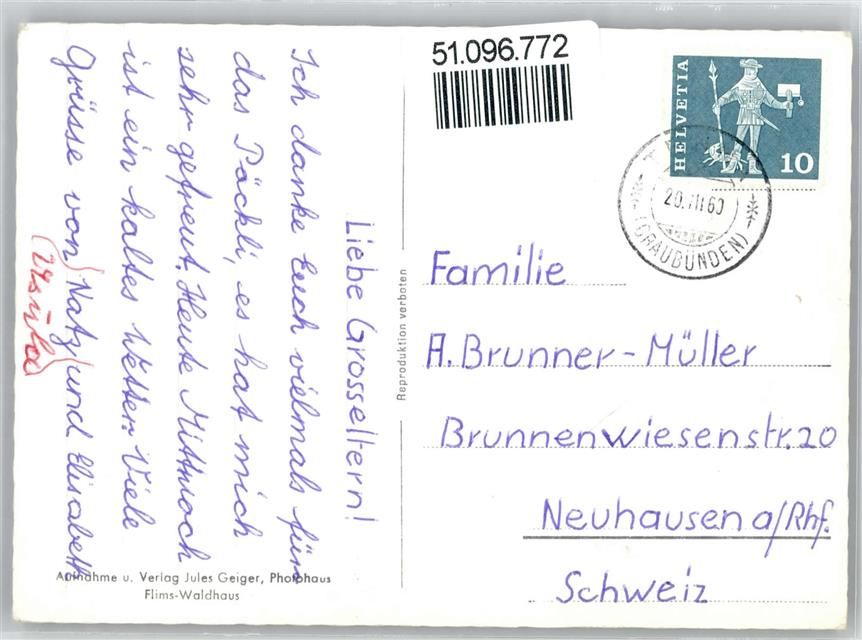 Liebe Grosseltern!
Ich danke Euch vielmals für
das Päckli, es hat mich
sehr gefreut. Heute Mittwoch
ist ein kaltes Wetter. Viele
Grüsse von (Natz) und Elisabeth
(Ursula)
Aufnahme u. Verlag Jules Geiger, Photohaus
Flims-Waldhaus
Reproduktion verboten
51.096.772
HELVETIA
10
(GRAUBÜNDEN)
Familie
A. Brunner-Müller
Brunnenwiesenstr. 20
Neuhausen a/Rhf.
Schweiz